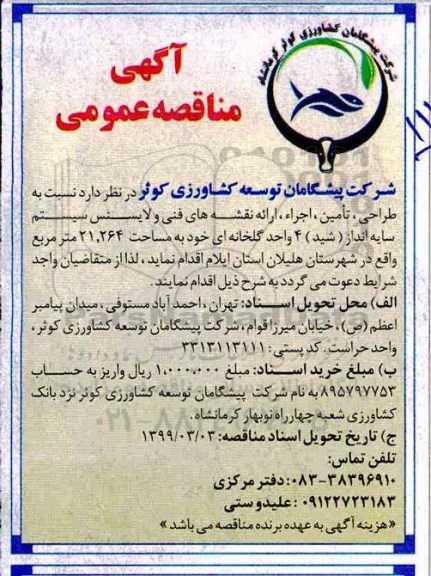 شرکت پیشگامان کشاورزی کوثر کرمانشاه
آگهی
مناقصه عمومی
شرکت پیشگامان توسعه کشاورزی کوثر در نظر دارد نسبت به
طراحی ، تأمین ، اجراء ، ارائه نقشه های فنی و لایسنس سیستم
سایه انداز ( شید ) ۴ واحد گلخانه ای خود به مساحت ۲۱,۲۶۴ متر مربع
واقع در شهرستان هلیلان استان ایلام اقدام نماید ، لذا از متقاضیان واجد
شرایط دعوت می گردد به شرح ذیل اقدام نمایند.
الف) محل تحویل اسناد: تهران ، احمد آباد مستوفی ، میدان پیامبر
اعظم (ص) ، خیابان میرزا قوام ، شرکت پیشگامان توسعه کشاورزی کوثر ،
واحد حراست. کد پستی: ۳۳۱۳۱۱۳۱۱۱
ب) مبلغ خرید اسناد: مبلغ ۱,۰۰۰,۰۰۰ ریال واریز به حساب
۸۹۵۷۹۷۷۵۳ به نام شرکت پیشگامان توسعه کشاورزی کوثر نزد بانک
کشاورزی شعبه چهارراه نوبهار کرمانشاه.
ج) تاریخ تحویل اسناد مناقصه: ۱۳۹۹/۰۳/۰۳
تلفن تماس:
۰۸۳-۳۸۳۹۶۹۱۰: دفتر مرکزی
۰۹۱۲۲۷۲۳۱۸۳ : علیدوستی
«هزینه آگهی به عهده برنده مناقصه می باشد »